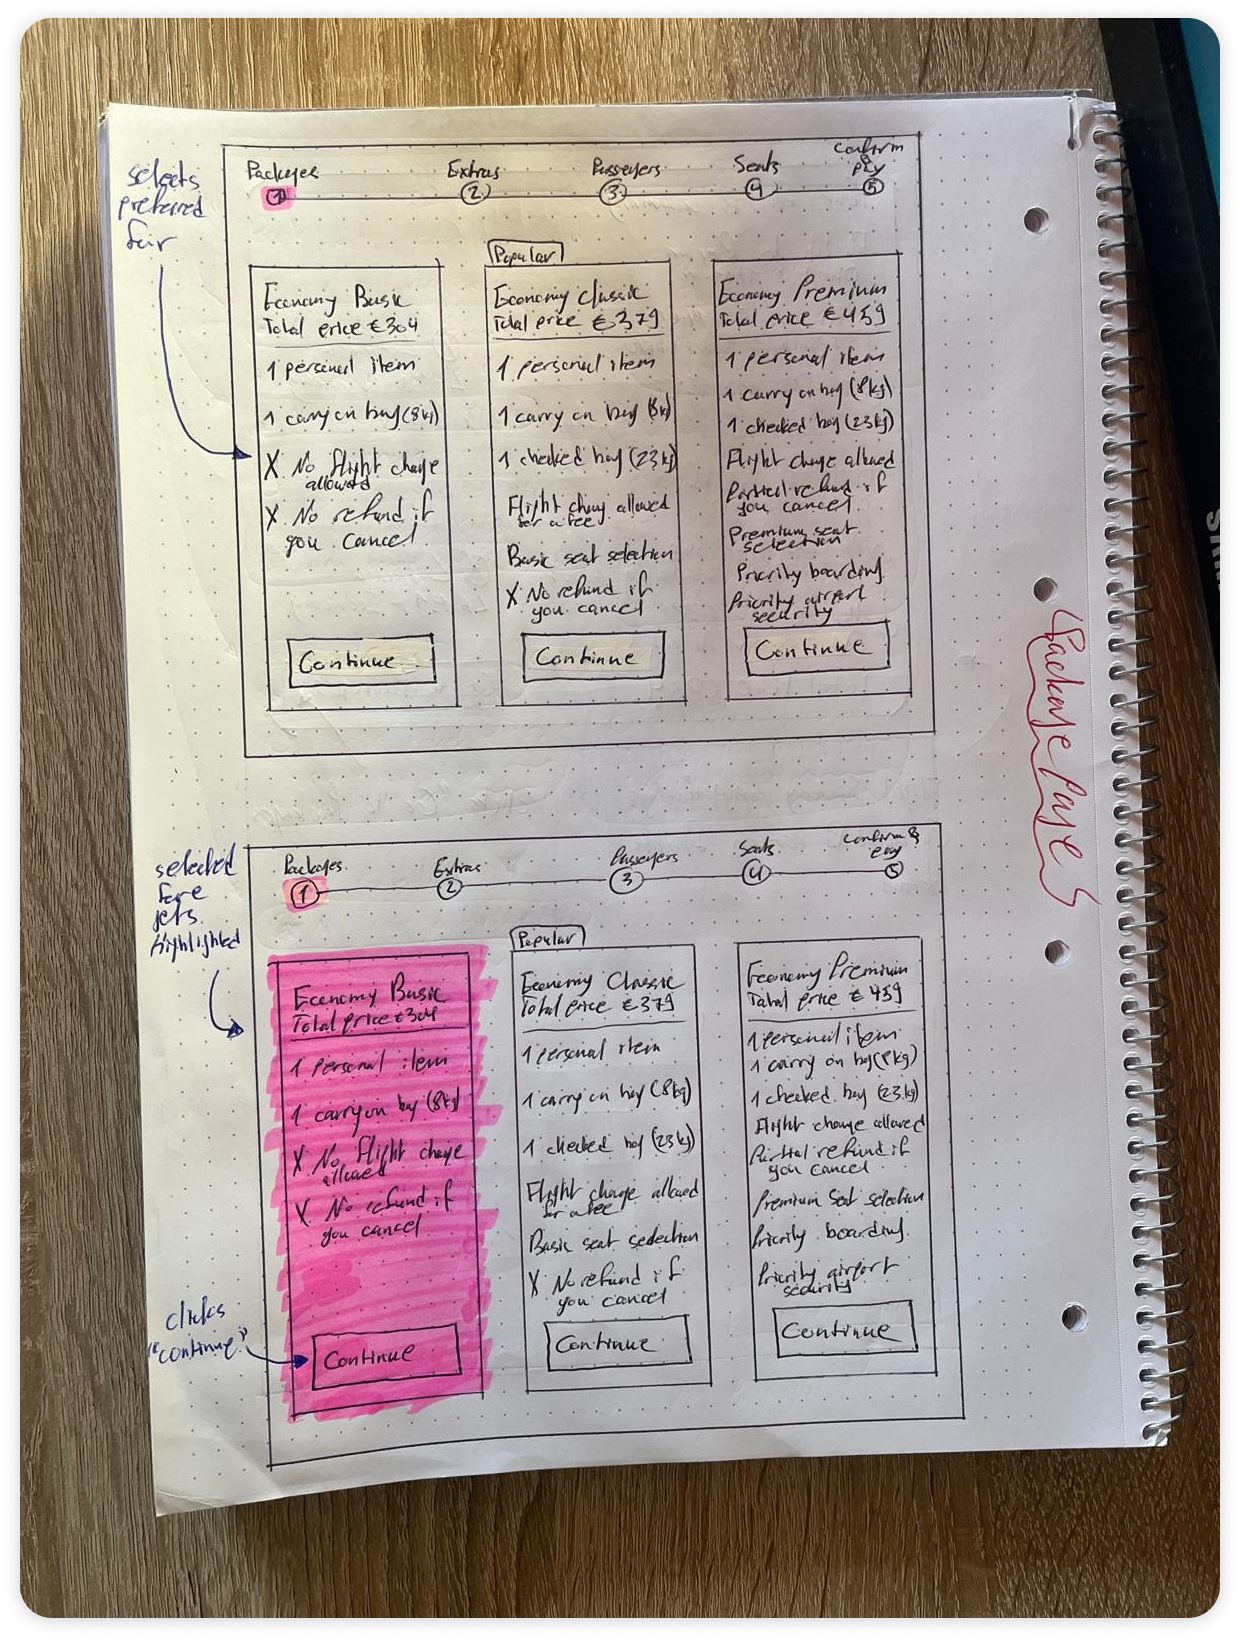 selects
preferred
fair
Packages
Extras
Passengers
Seats
Confirm
&
pay
1
2
3
4
5
Economy Basic
Total price €304
1 personal item
1 carry on bag (8kg)
X No flight change
allowed
X No refund if
you cancel
Continue
Popular
Economy Classic
Total price €379
1 personal item
1 carry on bag (8kg)
1 checked bag (23kg)
Flight change allowed
for a fee
Basic seat selection
X No refund if
you cancel
Continue
Economy Premium
Total price €459
1 personal item
1 carry on bag (8kg)
1 checked bag (23kg)
Flight change allowed
Partial refund if
you cancel
Premium seat
selection
Priority boarding
Priority airport
security
Continue
Package Page
selected
fare
gets
highlighted
Packages
Extras
Passengers
Seats
Confirm &
pay
1
2
3
4
5
Economy Basic
Total price €304
1 personal item
1 carry on bag (8kg)
X No flight change
allowed
X No refund if
you cancel
Continue
clicks
"continue"
Popular
Economy Classic
Total price €379
1 personal item
1 carry on bag (8kg)
1 checked bag (23kg)
Flight change allowed
for a fee
Basic seat selection
X No refund if
you cancel
Continue
Economy Premium
Total price €459
1 personal item
1 carry on bag (8kg)
1 checked bag (23kg)
Flight change allowed
Partial refund if
you cancel
Premium Seat selection
Priority boarding
Priority airport
security
Continue